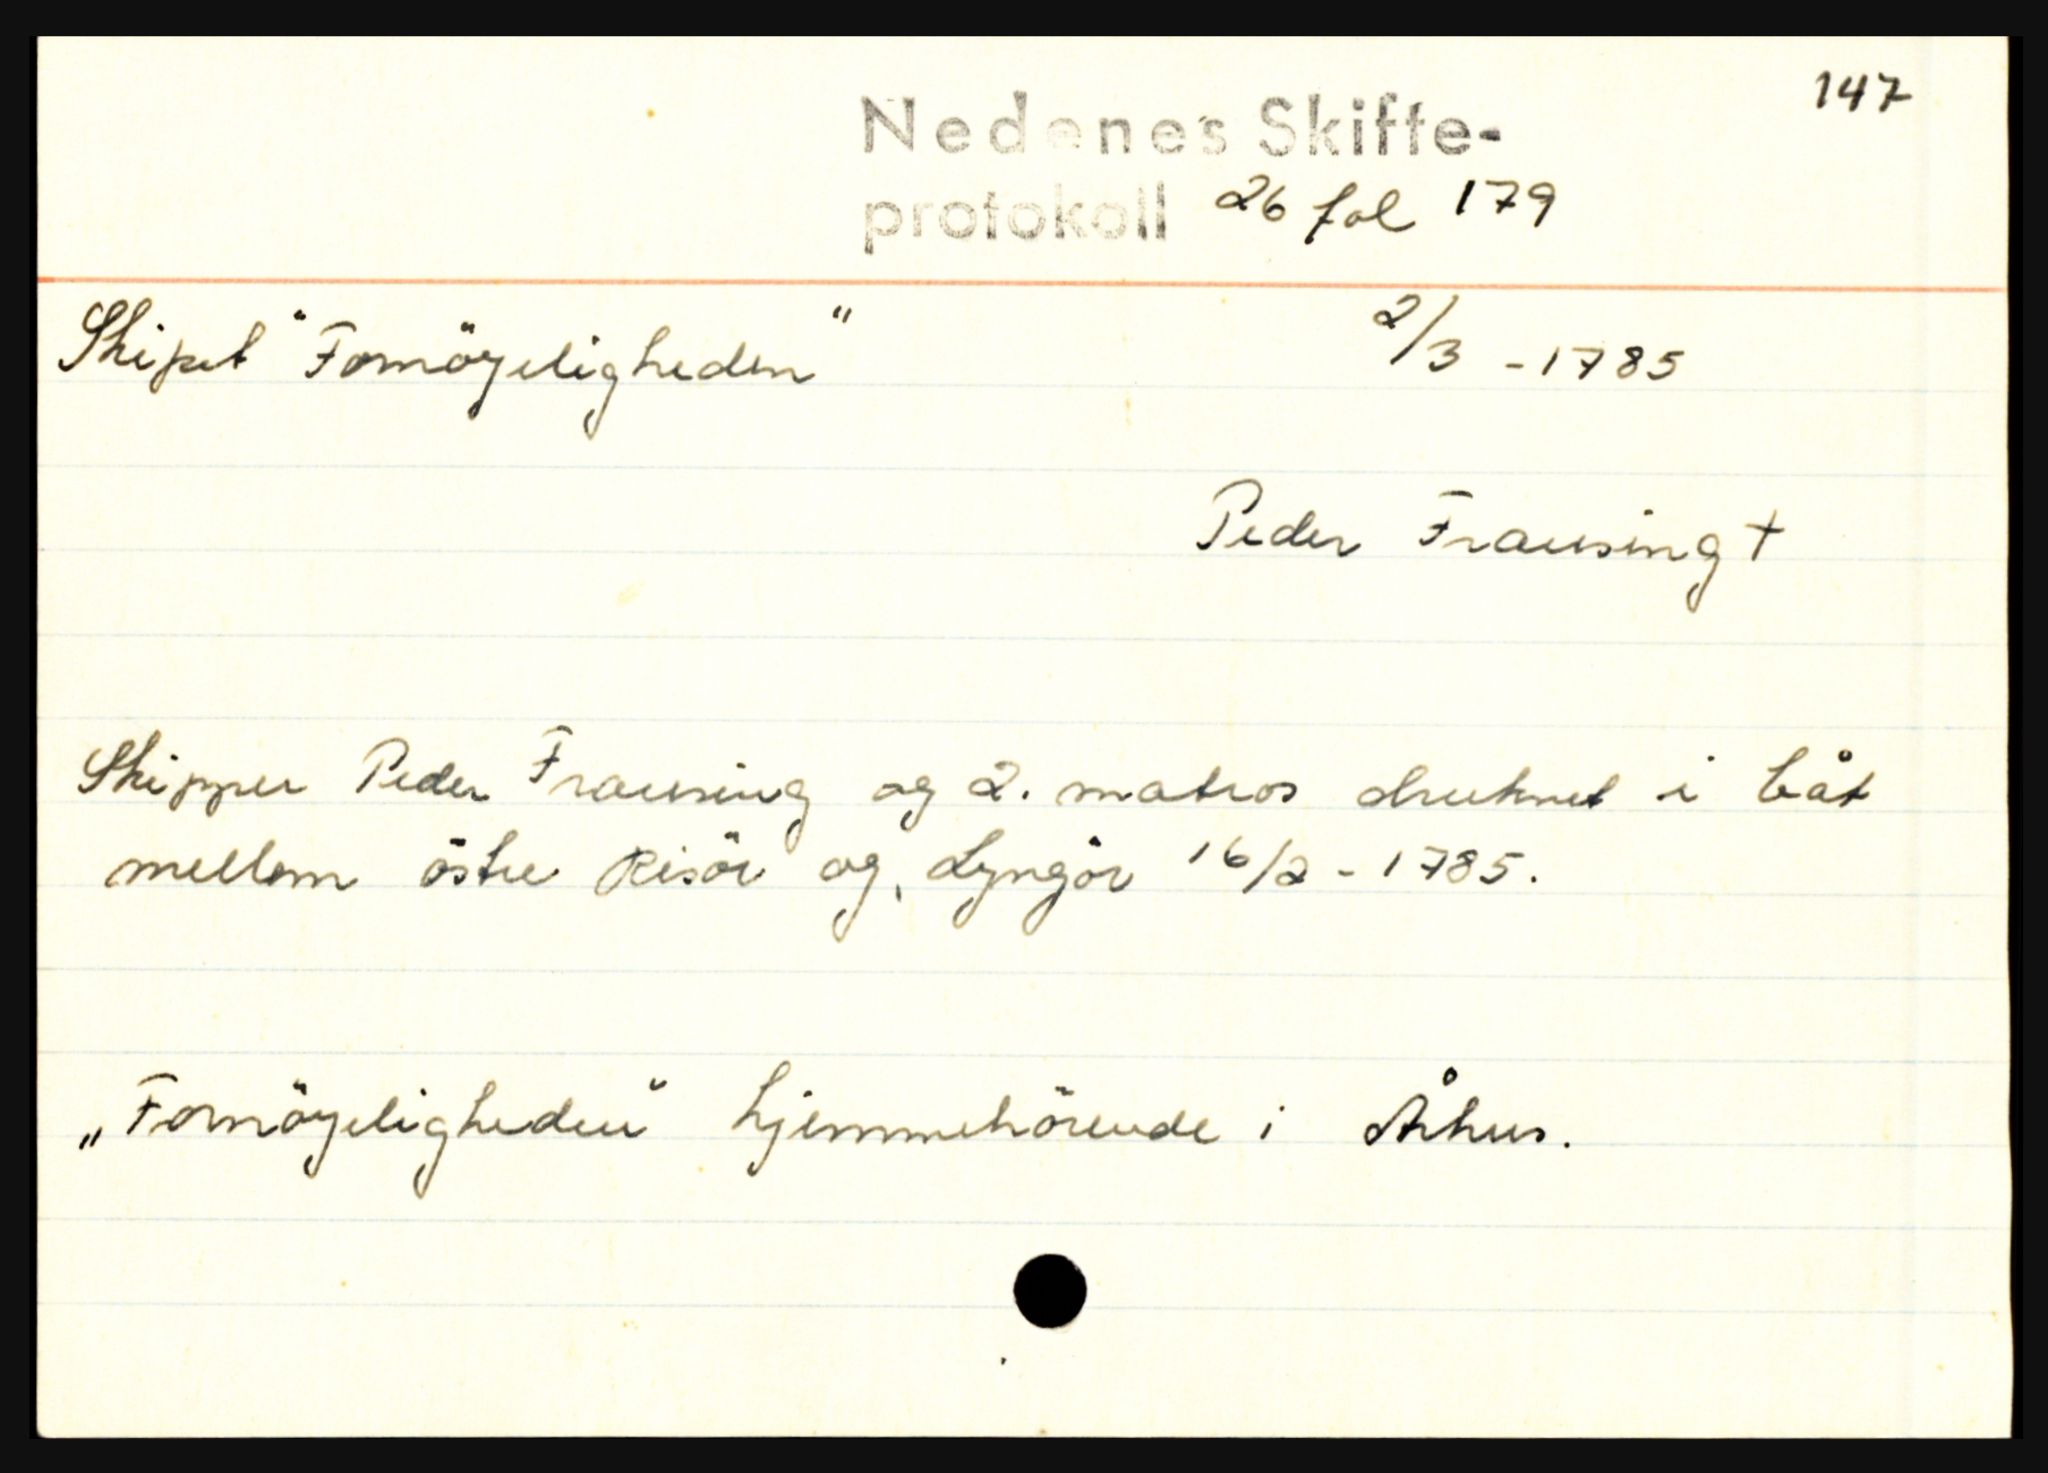 147
Nedenes Skifte-
protokoll 26 fol 179
Skipet "Fornöyeligheden" 2/3 - 1785
Peder Frausing +
Skipper Peder Frausing og 2. matros druknet i båt
mellem östre Risör og, Lyngör 16/2 - 1785.
„Fornöyeligheden" hjemmehörende i Århus.